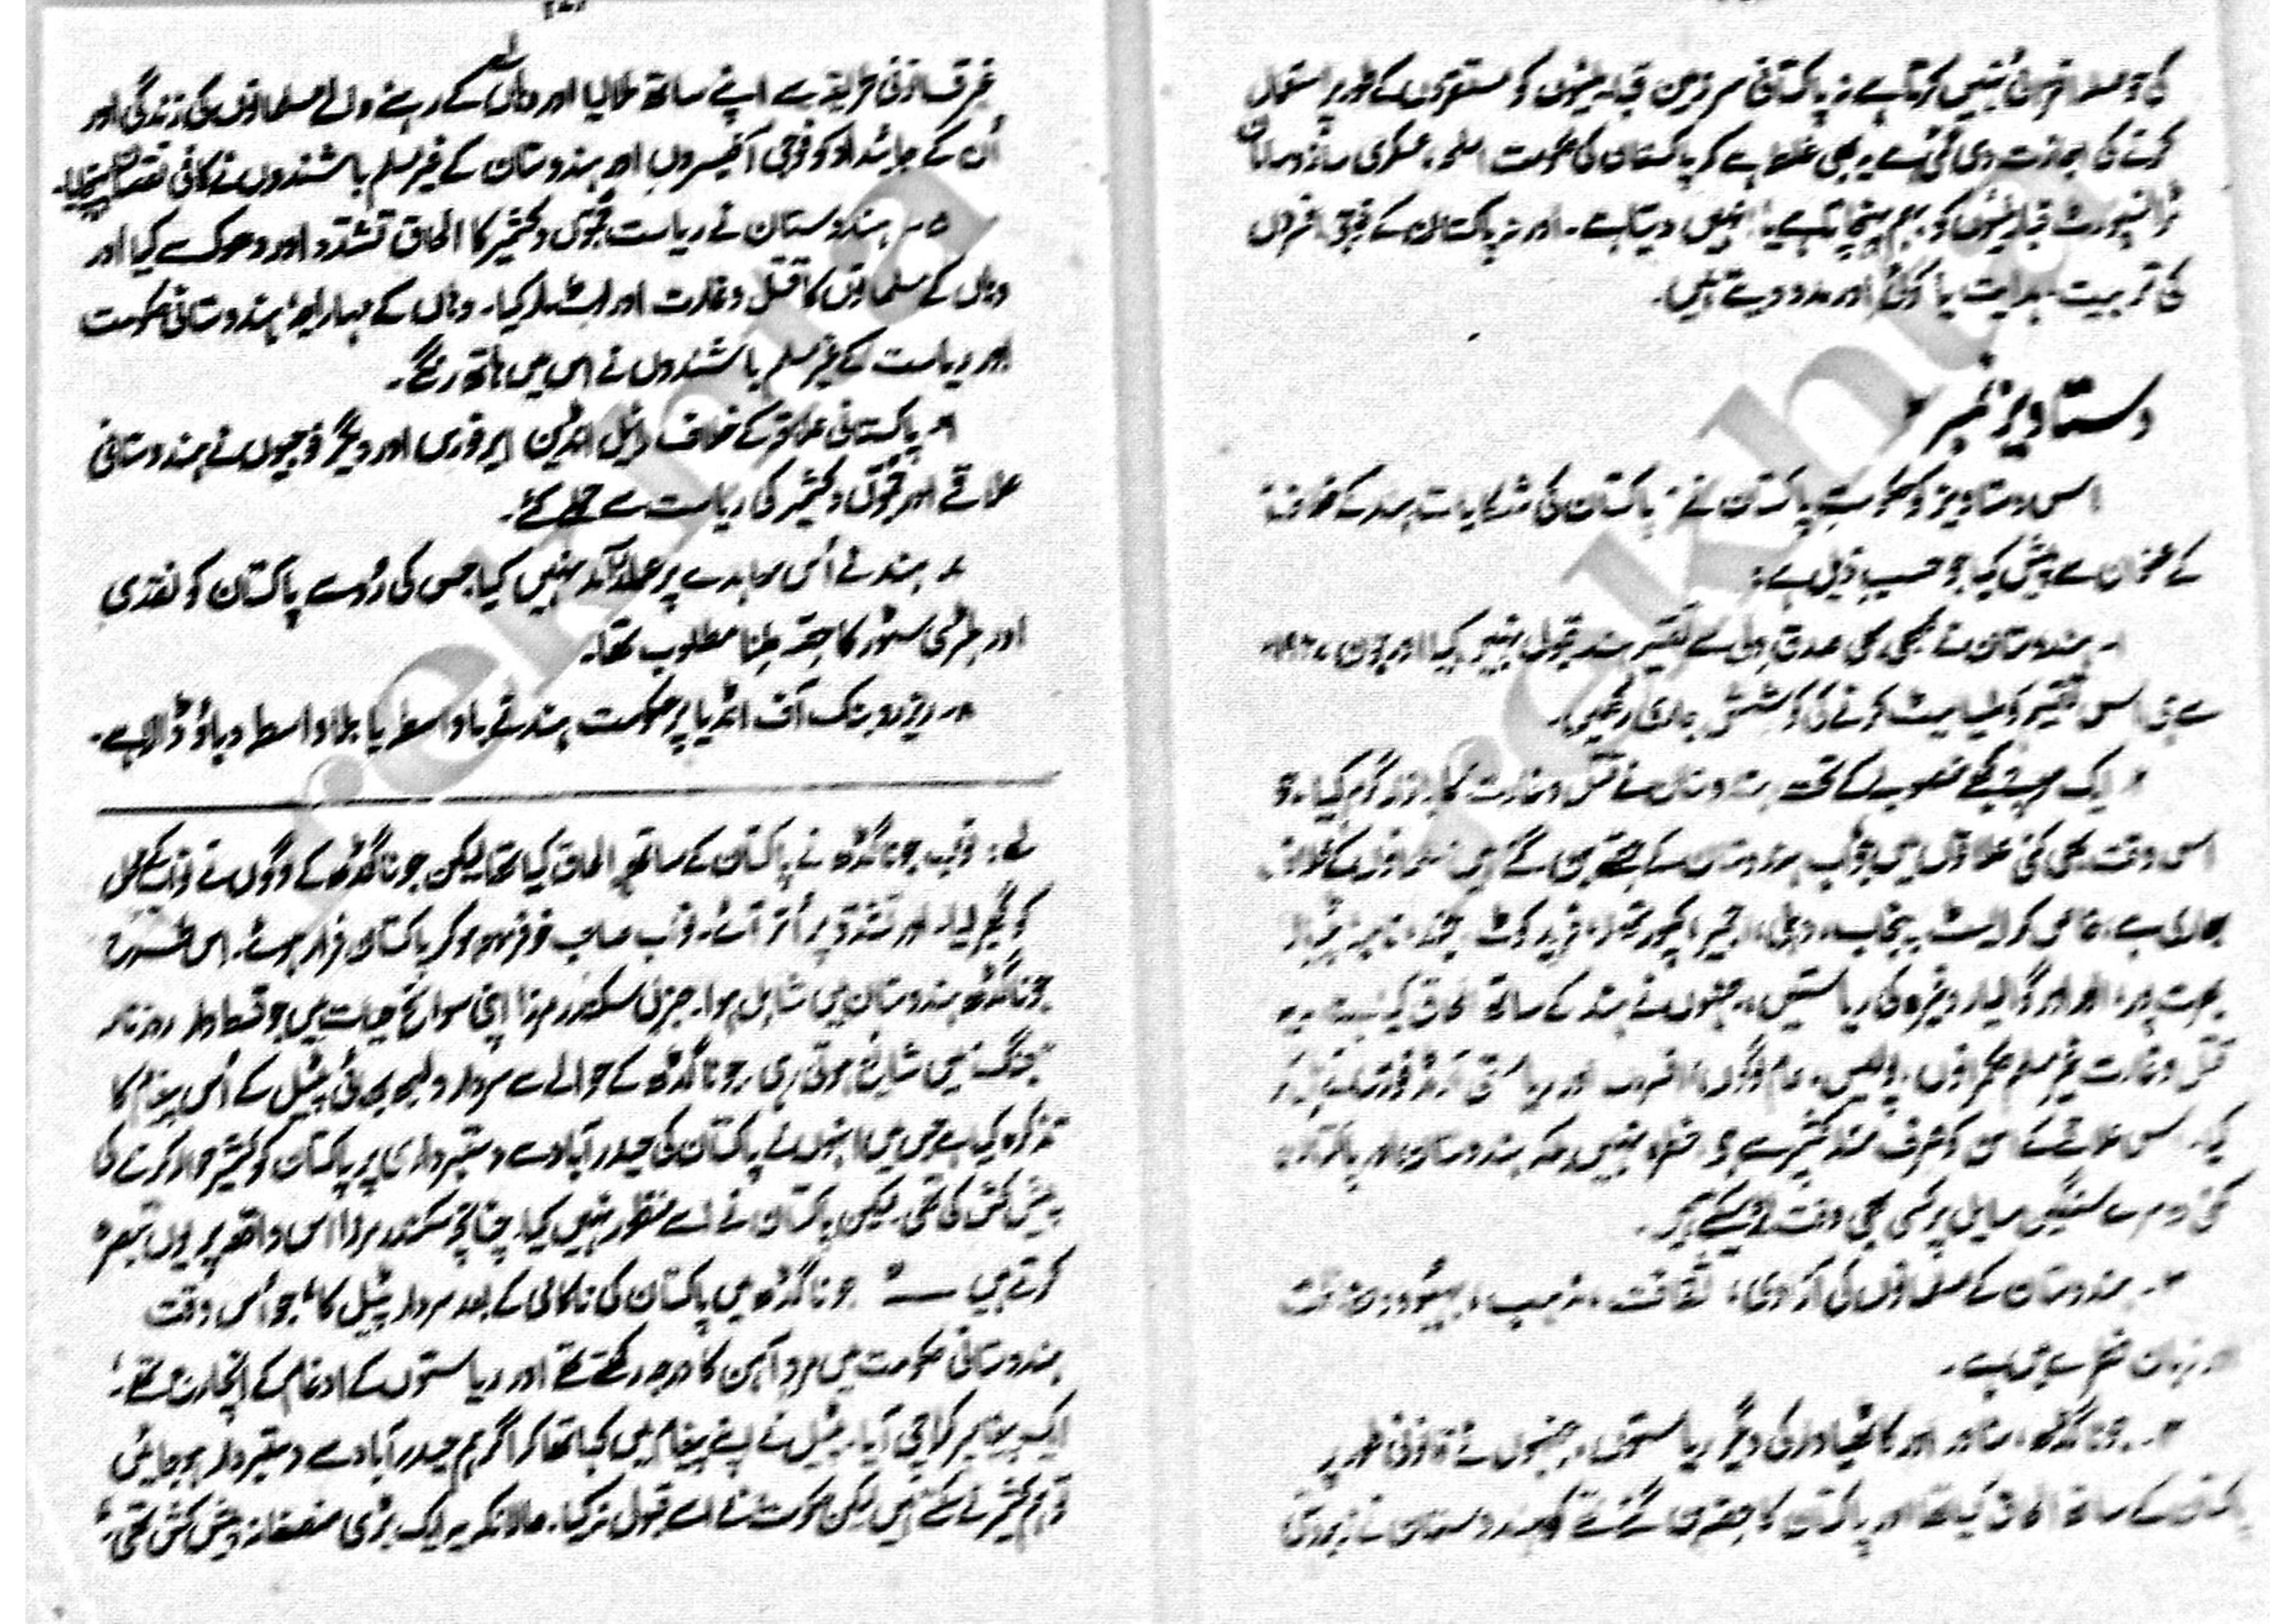 کی حوصلہ افزائی نہیں کرتا ہے نہ پاکستانی سرزمین قبائلیوں کو مستقروں کے طور پر استعمال
کرنے کی اجازت دی گئی ہے۔ یہ بھی غلط ہے کہ پاکستان کی حکومت اسلحہ، عسکری ساز و سامان
ٹرانسپورٹ قبائلیوں کو بہم پہنچاتا ہے یا انہیں دیتا ہے۔ اور نہ پاکستان کے فوجی افسر اُن
کی تربیت، ہدایت یا کوئی اور مدد دیتے ہیں۔
دستاویز نمبر
اس دستاویز کو حکومتِ پاکستان نے "پاکستان کی شکایات ہند کے خلاف"
کے عنوان سے پیش کیا جو حسبِ ذیل ہے:
۱۔ ہندوستان نے کبھی بھی صدقِ دل سے تقسیمِ ہند قبول نہیں کیا اور جون ۱۹۴۷ء
سے ہی اس تقسیم کو ملیامیٹ کرنے کی کوشش جاری رکھی۔
۲۔ ایک منصوبے کے تحت ہندوستان نے قتل و غارت کا بازار گرم کیا۔ جو
اس وقت بھی کئی علاقوں میں جو اب ہندوستان کے حصے بن گئے ہیں مسلمانوں کے خلاف
جاری ہے، خاص کر ایسٹ پنجاب، دہلی، اجمیر، کپورتھلہ، فرید کوٹ، جیند، نابھہ، پٹیالہ
بھرت پور، الور اور گوالیار وغیرہ کی ریاستیں، جنہوں نے ہند کے ساتھ الحاق کیا ہے۔ یہ
قتل و غارت غیر مسلم حکمرانوں، پولیس، عام لوگوں، افسروں اور ریاستی آرمڈ فورسز نے مل کر
کیا۔ اس علاقے کے امن کو صرف مسئلہ کشمیر سے ہی خطرہ نہیں بلکہ ہندوستان اور پاکستان
کئی دوسرے سنگین مسائل پر کسی بھی وقت لڑ سکتے ہیں۔
۳۔ ہندوستان کے مسلمانوں کی آزادی، ثقافت، مذہب، بہبود، حفاظت
اور زبان خطرے میں ہے۔
۴۔ جوناگڑھ، مناور اور کاٹھیاواڑ کی دیگر ریاستوں، جنہوں نے قانونی طور پر
پاکستان کے ساتھ الحاق کیا تھا اور پاکستان کا حصہ بن گئے تھے کو ہندوستان نے زبردستی
غیر قانونی طریقہ سے اپنے ساتھ ملا لیا اور وہاں کے رہنے والے مسلمانوں کی زندگی اور
اُن کے جائیداد کو فوجی آفیسروں اور ہندوستان کے غیر مسلم باشندوں نے کافی نقصان پہنچایا۔
۵۔ ہندوستان نے ریاست جموں و کشمیر کا الحاق تشدد اور دھوکے سے کیا اور
وہاں کے مسلمانوں کا قتل و غارت اور لوٹ مار کیا۔ وہاں کے مہاراجہ، ہندوستانی حکومت
اور ریاست کے غیر مسلم باشندوں نے اس میں ہاتھ رنگے۔
۶۔ پاکستانی علاقے کے خلاف رائل انڈین ایر فورس اور دیگر فوجیوں نے ہندوستانی
علاقے اور جموں و کشمیر کی ریاست سے حملے کئے۔
۷۔ ہند نے اُس معاہدے پر عملدرآمد نہیں کیا جس کی رُو سے پاکستان کو نقدی
اور ملٹری سٹورز کا حصہ ملنا مطلوب تھا۔
۸۔ ریزرو بنک آف انڈیا پر حکومت ہند نے باواسطہ یا بلاواسطہ دباؤ ڈالا ہے۔
لے: نواب جوناگڑھ نے پاکستان کے ساتھ الحاق کیا تھا لیکن جوناگڑھ کے لوگوں نے نواب کے محل
کو گھیر لیا۔ اور تشدد پر اُتر آئے۔ نواب صاحب خوفزدہ ہو کر پاکستان فرار ہوئے۔ اس طرح
جوناگڑھ ہندوستان میں شامل ہوا۔ جنرل سکندر مرزا اپنی سوانح حیات میں جو قسط وار روزنامہ
"جنگ" میں شایع ہوتی رہی، جوناگڑھ کے حوالے سے سردار ولبھ بھائی پٹیل کے اُس پیغام کا
تذکرہ کیا ہے جس میں انہوں نے پاکستان کی حیدرآباد سے دستبرداری پر پاکستان کو کشمیر حوالہ کرنے کی
پیش کش کی تھی۔ لیکن پاکستان نے اسے منظور نہیں کیا۔ چنانچہ سکندر مرزا اس واقعہ پر یوں تبصرہ
کرتے ہیں — "جوناگڑھ میں پاکستان کی ناکامی کے بعد سردار پٹیل کا، جو اُس وقت
ہندوستانی حکومت میں مردِ آہن کا درجہ رکھتے تھے اور ریاستوں کے ادغام کے انچارج تھے،
ایک پیغامبر کراچی آیا۔ پٹیل نے اپنے پیغام میں کہا تھا کہ اگر ہم حیدرآباد سے دستبردار ہو جائیں
تو ہم کشمیر لے سکتے ہیں لیکن حکومت نے اسے قبول نہ کیا۔ حالانکہ یہ ایک بڑی منصفانہ پیش کش تھی"